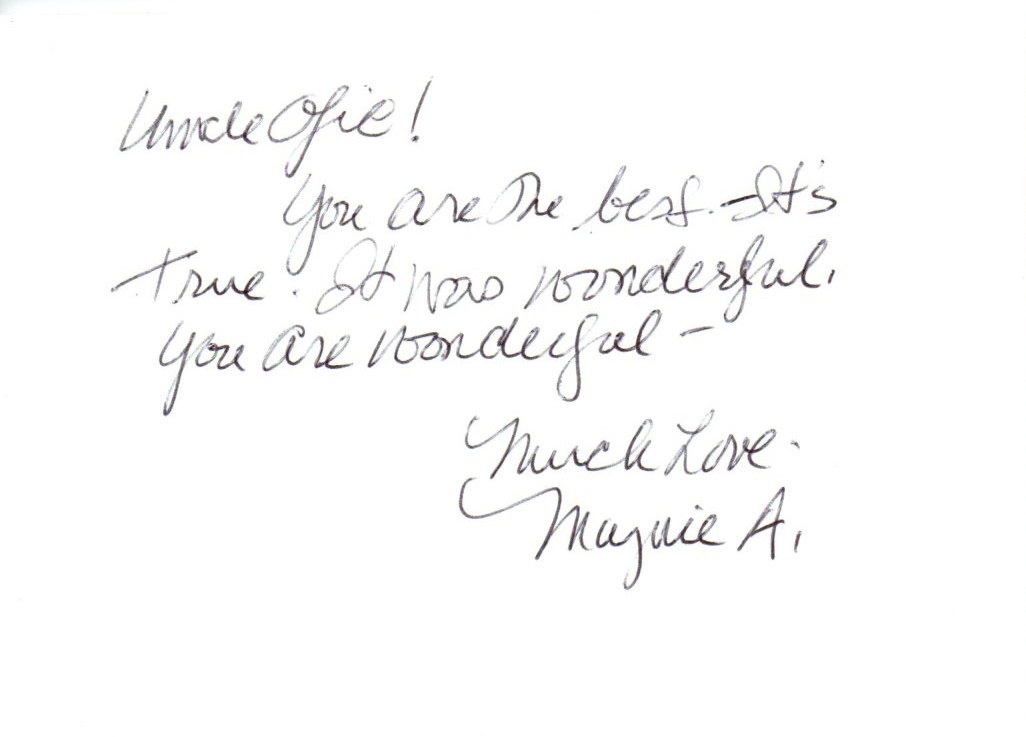 Uncle Ofie!
You are the best. It's
true. It was wonderful.
You are wonderful -
Much Love.
Maynie A.